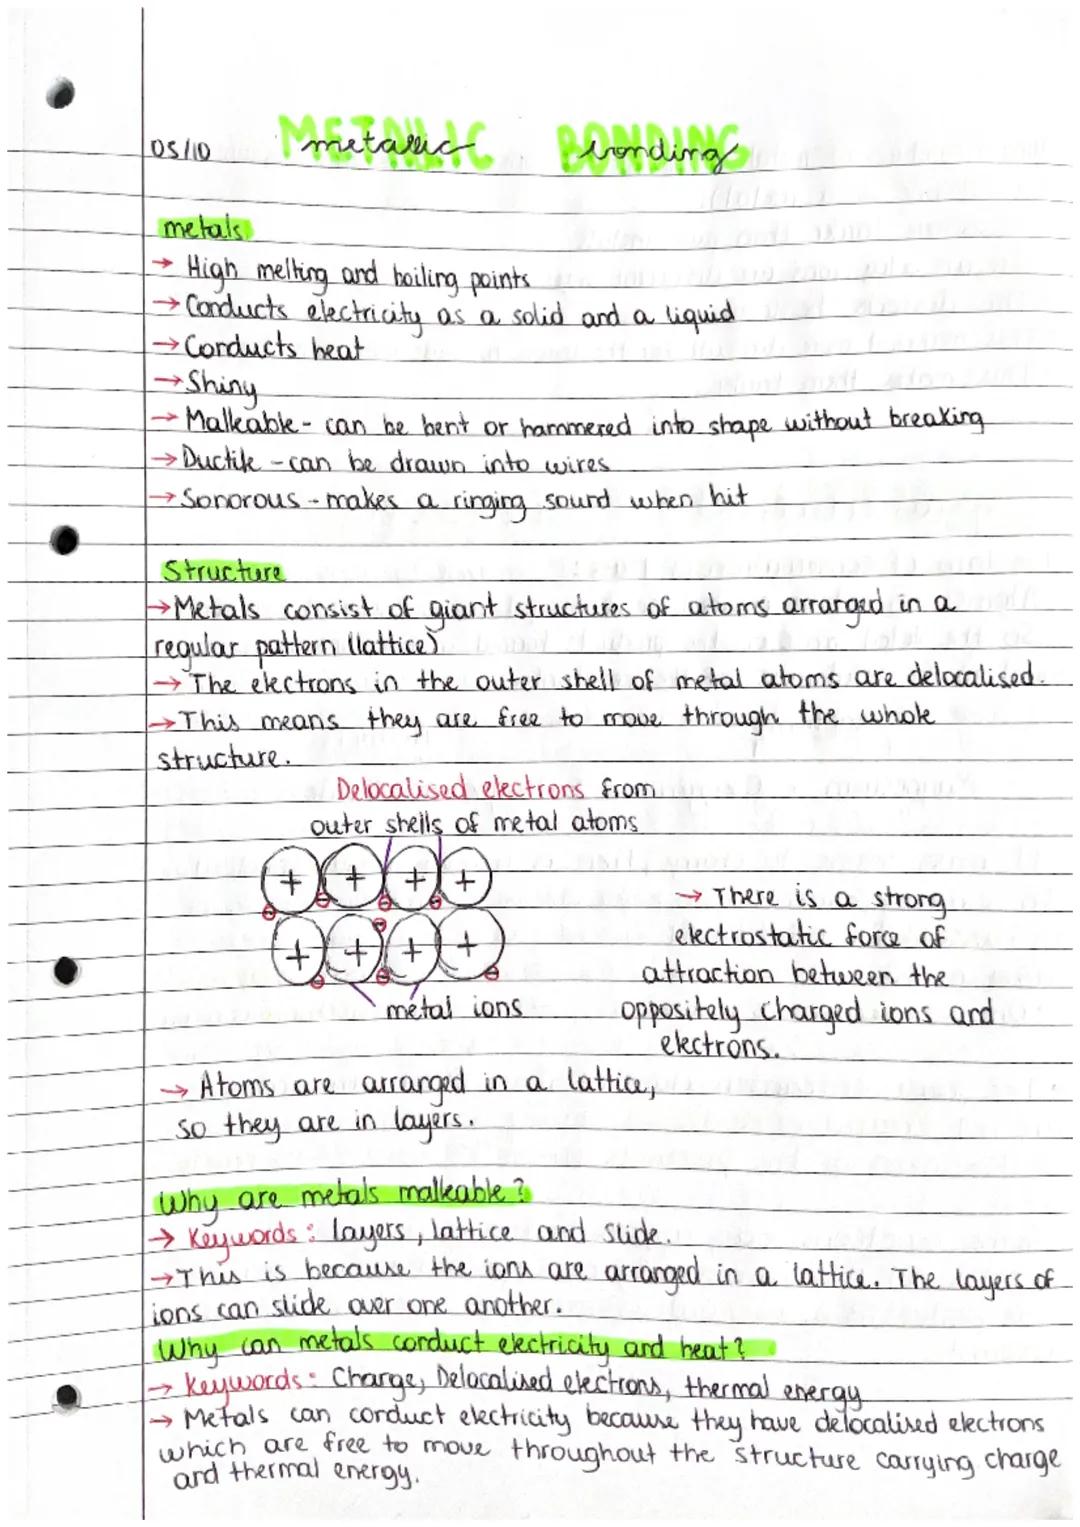 05/10 METALLIC BONDING
metallic bonding
metals
→ High melting and boiling points
→ Conducts electricity as a solid and a liquid
→ Conducts heat
→ Shiny
→ Malleable - can be bent or hammered into shape without breaking
→ Ductile - can be drawn into wires
→ Sonorous - makes a ringing sound when hit
Structure
→ Metals consist of giant structures of atoms arranged in a
regular pattern (lattice)
→ The electrons in the outer shell of metal atoms are delocalised.
→ This means they are free to move through the whole
structure.
Delocalised electrons from
outer shells of metal atoms
+ + + +
+ + + +
metal ions
→ There is a strong
electrostatic force of
attraction between the
oppositely charged ions and
electrons.
→ Atoms are arranged in a lattice,
so they are in layers.
Why are metals malleable?
→ Keywords: layers, lattice and slide.
→ This is because the ions are arranged in a lattice. The layers of
ions can slide over one another.
Why can metals conduct electricity and heat?
→ Keywords: Charge, Delocalised electrons, thermal energy
→ Metals can conduct electricity because they have delocalised electrons
which are free to move throughout the structure carrying charge
and thermal energy.